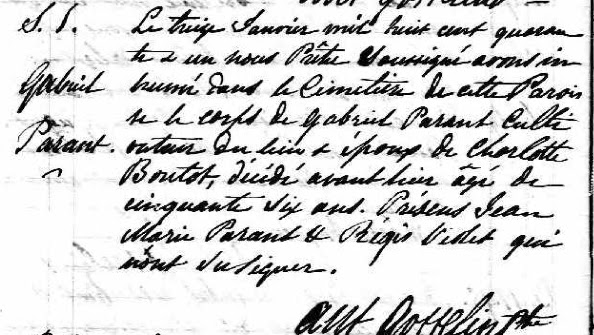 S. 5.
Gabriel
Parant.
Le treize Janvier mil huit cent quaran
te & un nous Prêtre Soussigné avons in
humé dans le Cimetière de cette Parois
se le corps de Gabriel Parant Culti
vateur du lieu & époux de Charlotte
Boutot, décédé avant hier âgé de
cinquante six ans. Présens Jean
Marie Parant & Régis Violet qui
n'ont su signer.
Ant Gosselin Ptre